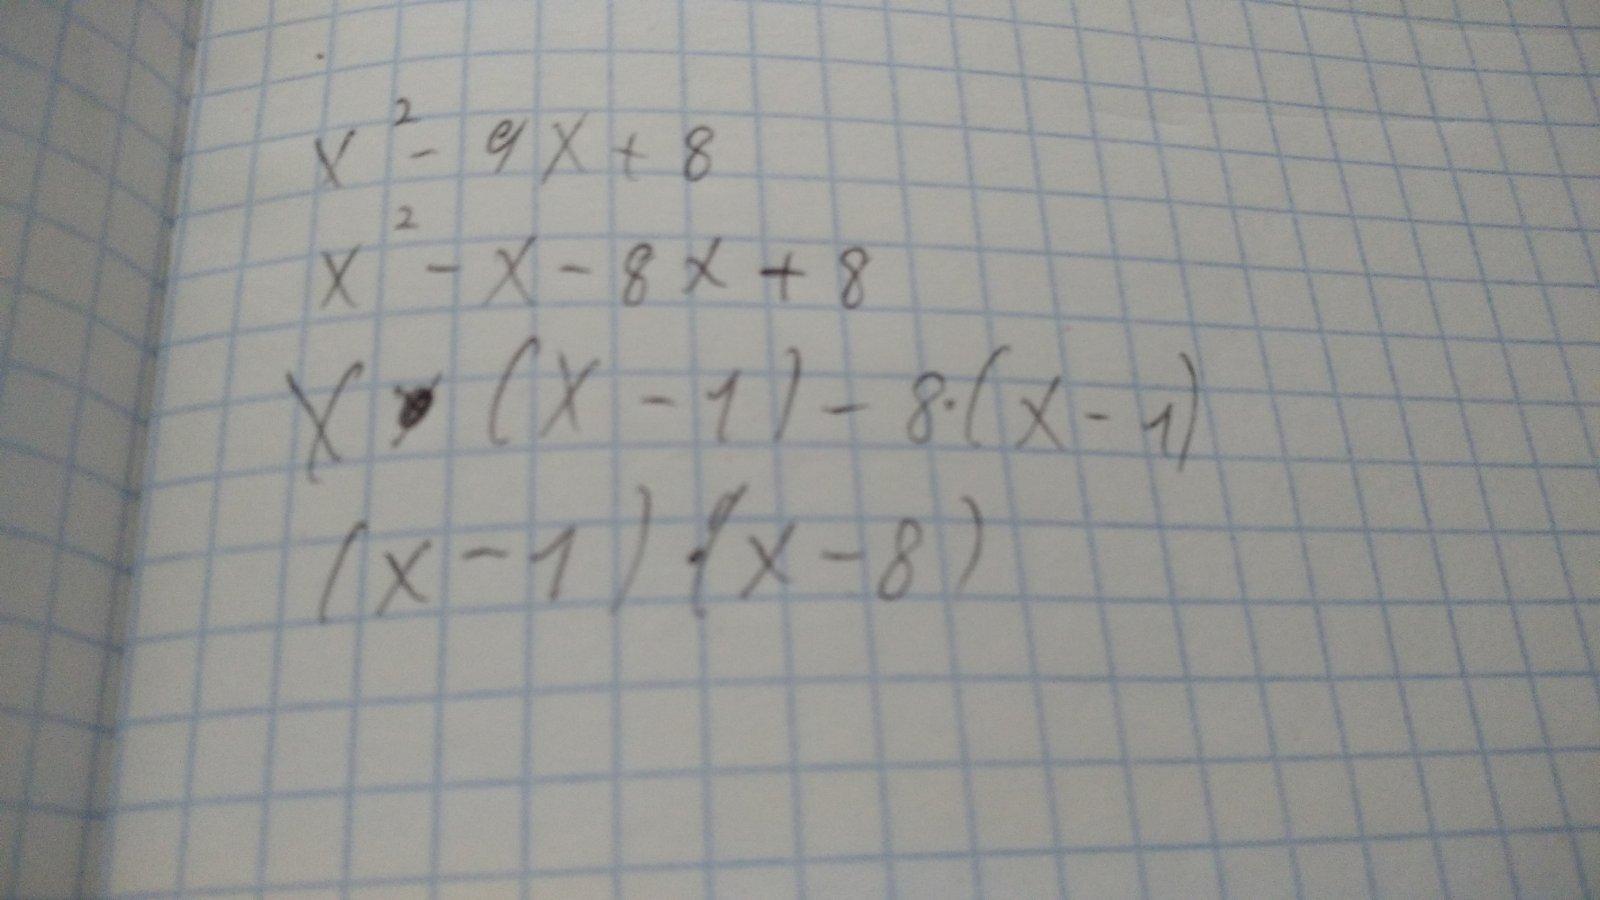 x² - 9x + 8
x² - x - 8x + 8
x · (x - 1) - 8·(x - 1)
(x - 1)·(x - 8)